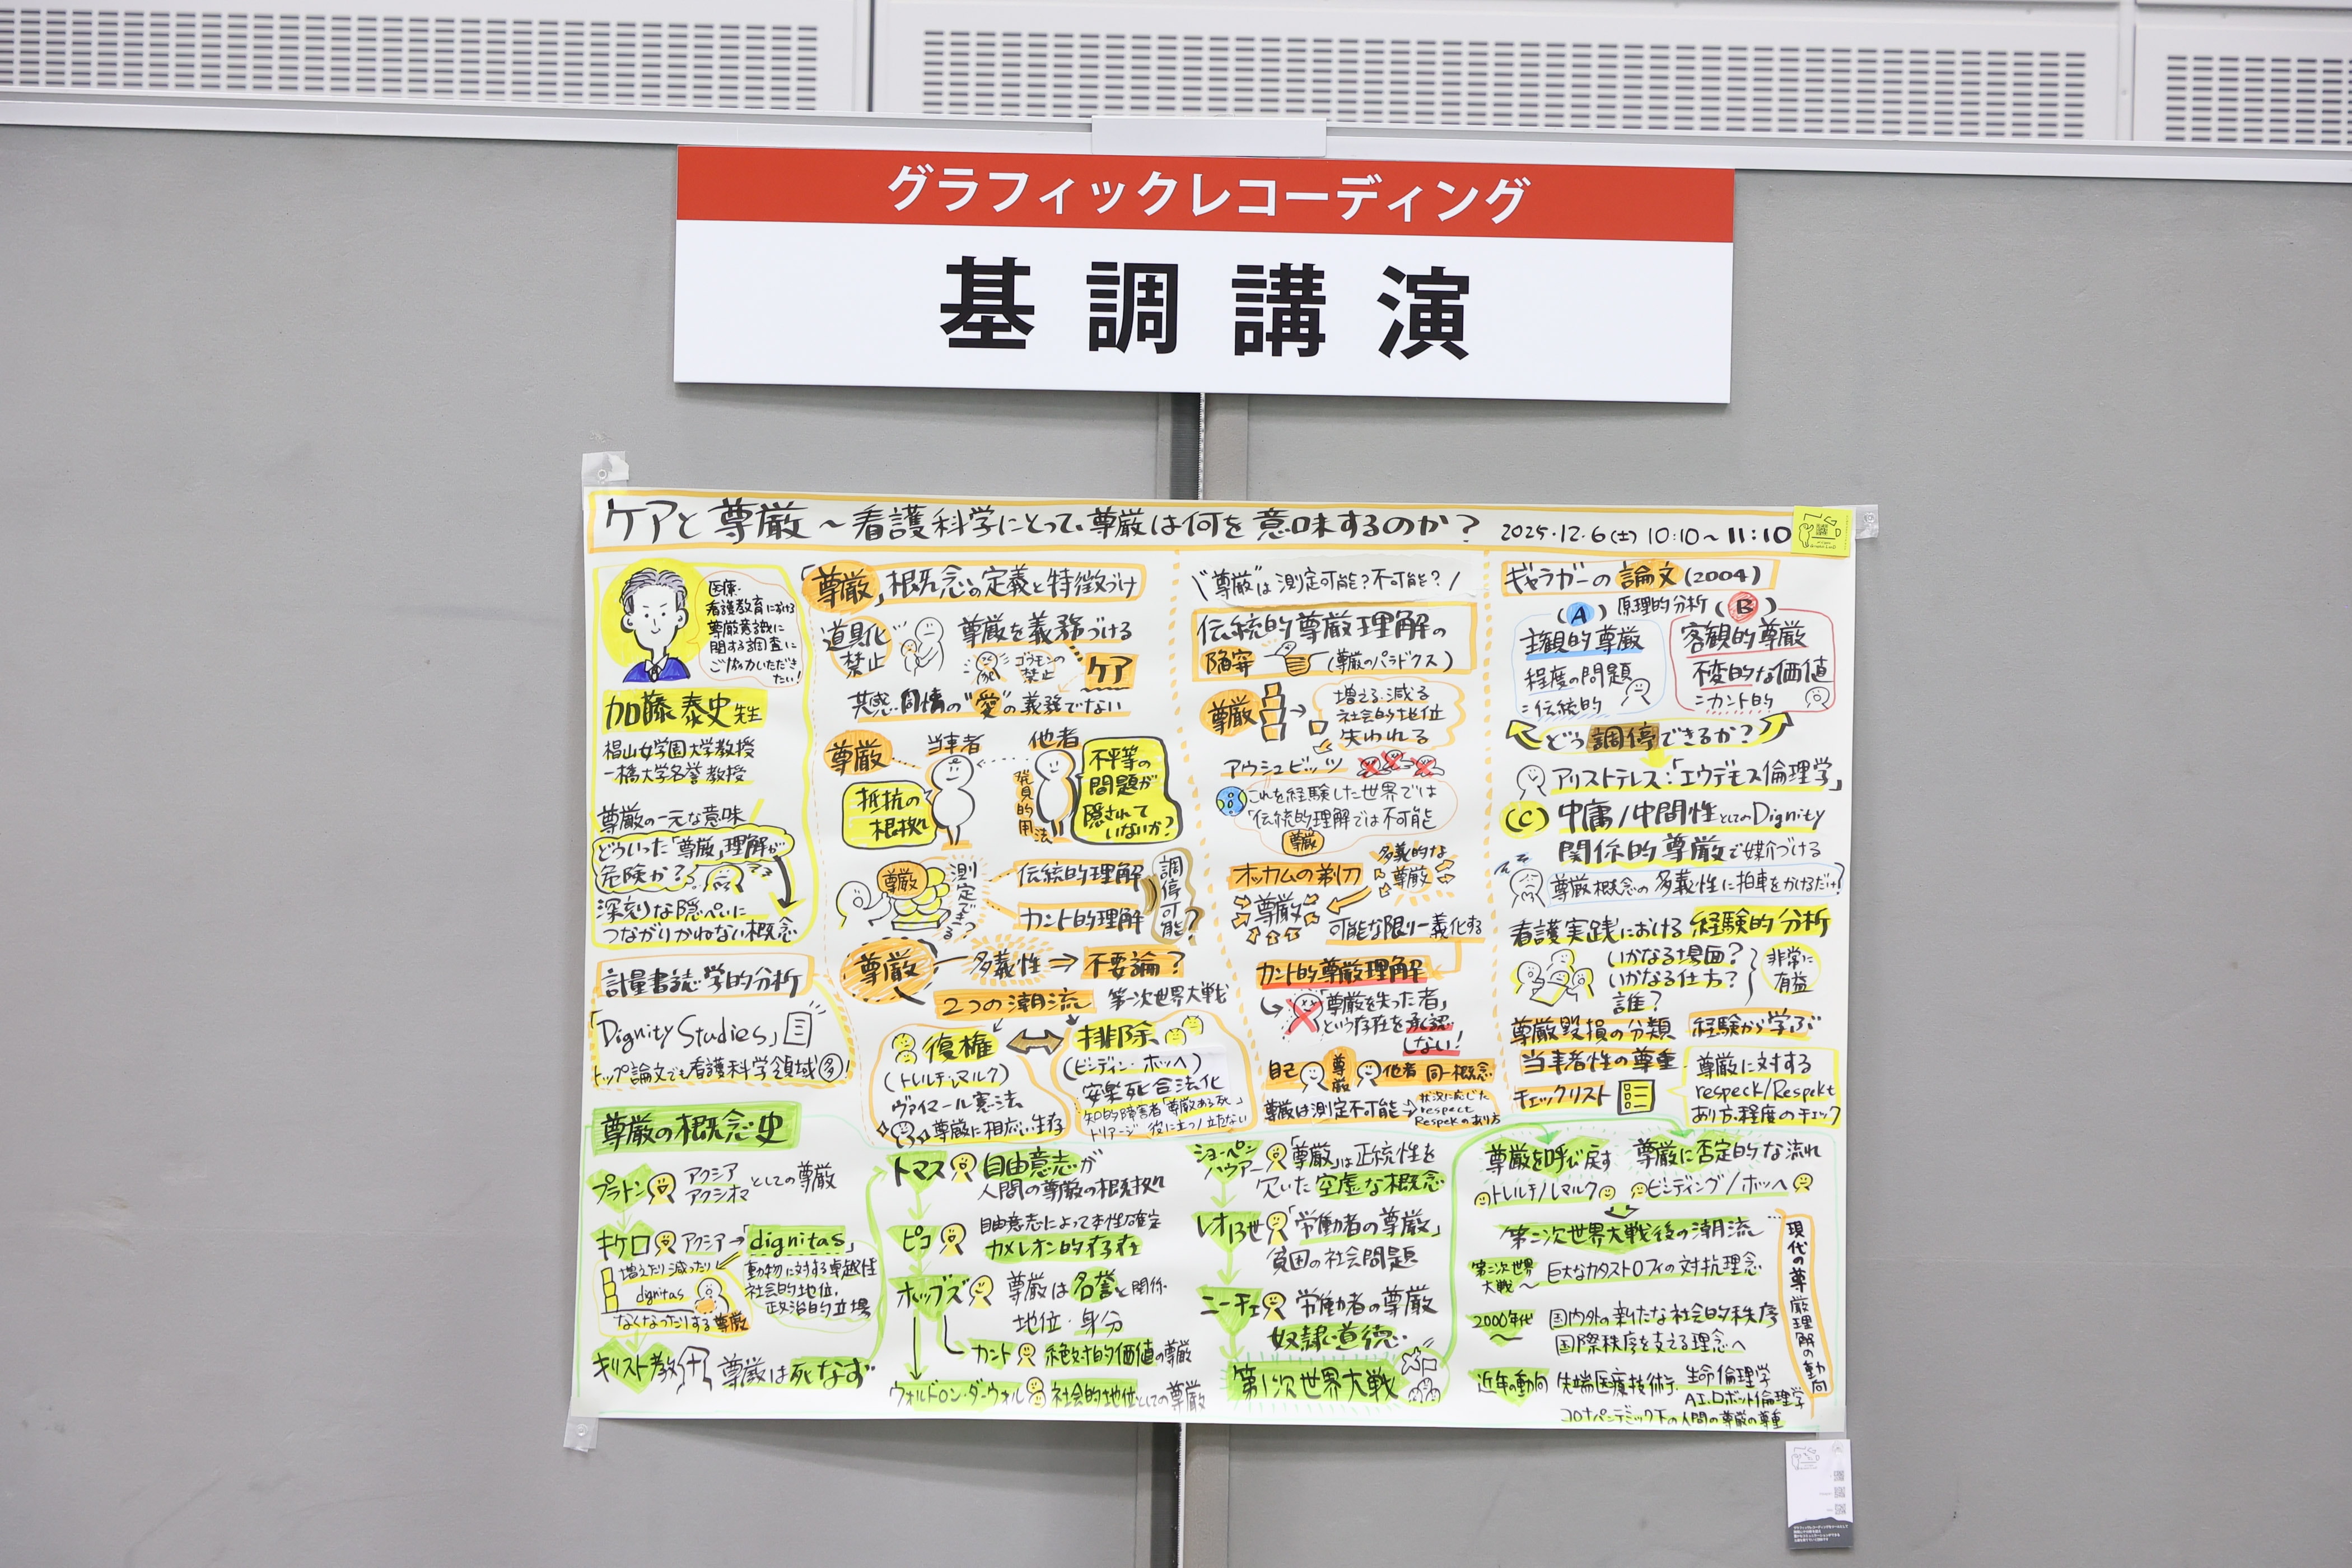 グラフィックレコーディング
基調講演
ケアと尊厳～看護科学にとって、尊厳は何を意味するのか？ 2025.12.6(土) 10:10～11:10
医療・
看護教育における
尊厳意識に
関する調査に
ご協力いただき
たい！
加藤泰史先生
椙山女学園大学教授
一橋大学名誉教授
尊厳の一元な意味
どういった「尊厳」理解が
危険か？
深刻な隠ぺいに
つながりかねない概念
計量書誌学的分析
「Dignity Studies」
トップ論文でも看護科学領域多！
「尊厳」概念の定義と特徴づけ
道具化
禁止
尊厳を義務づける
ゴラモンの
禁止
ケア
共感・同情の"愛"の義務でない
尊厳
当事者
他者
抵抗の
根拠
発見的用法
不平等の
問題が
隠されて
いないか？
尊厳
測定できる？
伝統的理解
カント的理解
調停可能？
尊厳
多義性⇒不要論？
2つの潮流
第一次世界大戦
復権
(トレルチ・レマルク)
ヴァイマール憲法
尊厳に相応しい生存
排除
(ビンディン・ホッヘ)
安楽死合法化
知的障害者「尊厳ある死」
トリアージ 役に立つ/立たない
"尊厳"は測定可能？不可能？
伝統的尊厳理解の
陥穽 (尊厳のパラドクス)
尊厳
増える・減る
社会的地位
失われる
アウシュビッツ
これを経験した世界では
「伝統的理解では不可能
尊厳
オッカムの剃刀
多義的な
尊厳
尊厳
可能な限り一義化する
カント的尊厳理解
「尊厳を失った者」
という存在を承認
しない！
自己 尊厳 他者 同一概念
尊厳は測定不可能→状況に応じた
respect
Respekのあり方
ギャラガーの論文(2004)
(A) 原理的分析 (B)
主観的尊厳
程度の問題
=伝統的
客観的尊厳
不変的な価値
=カント的
どう調停できるか？
アリストテレス：「エウデモス倫理学」
(C) 中庸/中間性としてのDignity
関係的尊厳で媒介づける
尊厳概念の多義性に拍車をかけるだけ！
看護実践における経験的分析
いかなる場面？
いかなる仕方？
誰？
非常に
有益
尊厳毀損の分類 経験から学ぶ
当事者性の尊重
チェックリスト
尊厳に対する
respeck/Respekt
あり方・程度のチェック
尊厳の概念史
プラトン アクシア
アクシオマ としての尊厳
キケロ アクシア→「dignitas」
増えたり減ったり
dignitas
なくなったりする尊厳
動物に対する卓越性
社会的地位、
政治的立場
キリスト教 尊厳は死なず
トマス 自由意志が
人間の尊厳の根拠
ピコ 自由意志によって本性を確定
カメレオン的存在
ホッブズ 尊厳は名誉と関係
地位・身分
カント 絶対的価値の尊厳
ウォルドロン・ダーウォル 社会的地位としての尊厳
ショーペン
ハウアー 「尊厳」は正統性を
欠いた空虚な概念
レオ13世 「労働者の尊厳」
貧困の社会問題
ニーチェ 労働者の尊厳
奴隷道徳
第1次世界大戦
尊厳を呼び戻す
トレルチ/レマルク
尊厳に否定的な流れ
ビンディング/ホッヘ
第二次世界大戦後の潮流
第二次世界
大戦～ 巨大なカタストロフィの対抗理念
2000年代
～ 国内外の新たな社会的秩序
国際秩序を支える理念へ
近年の動向 先端医療技術、生命倫理学
AI、ロボット倫理学
コロナパンデミック下の人間の尊厳の尊重
現代の尊厳理解の動向